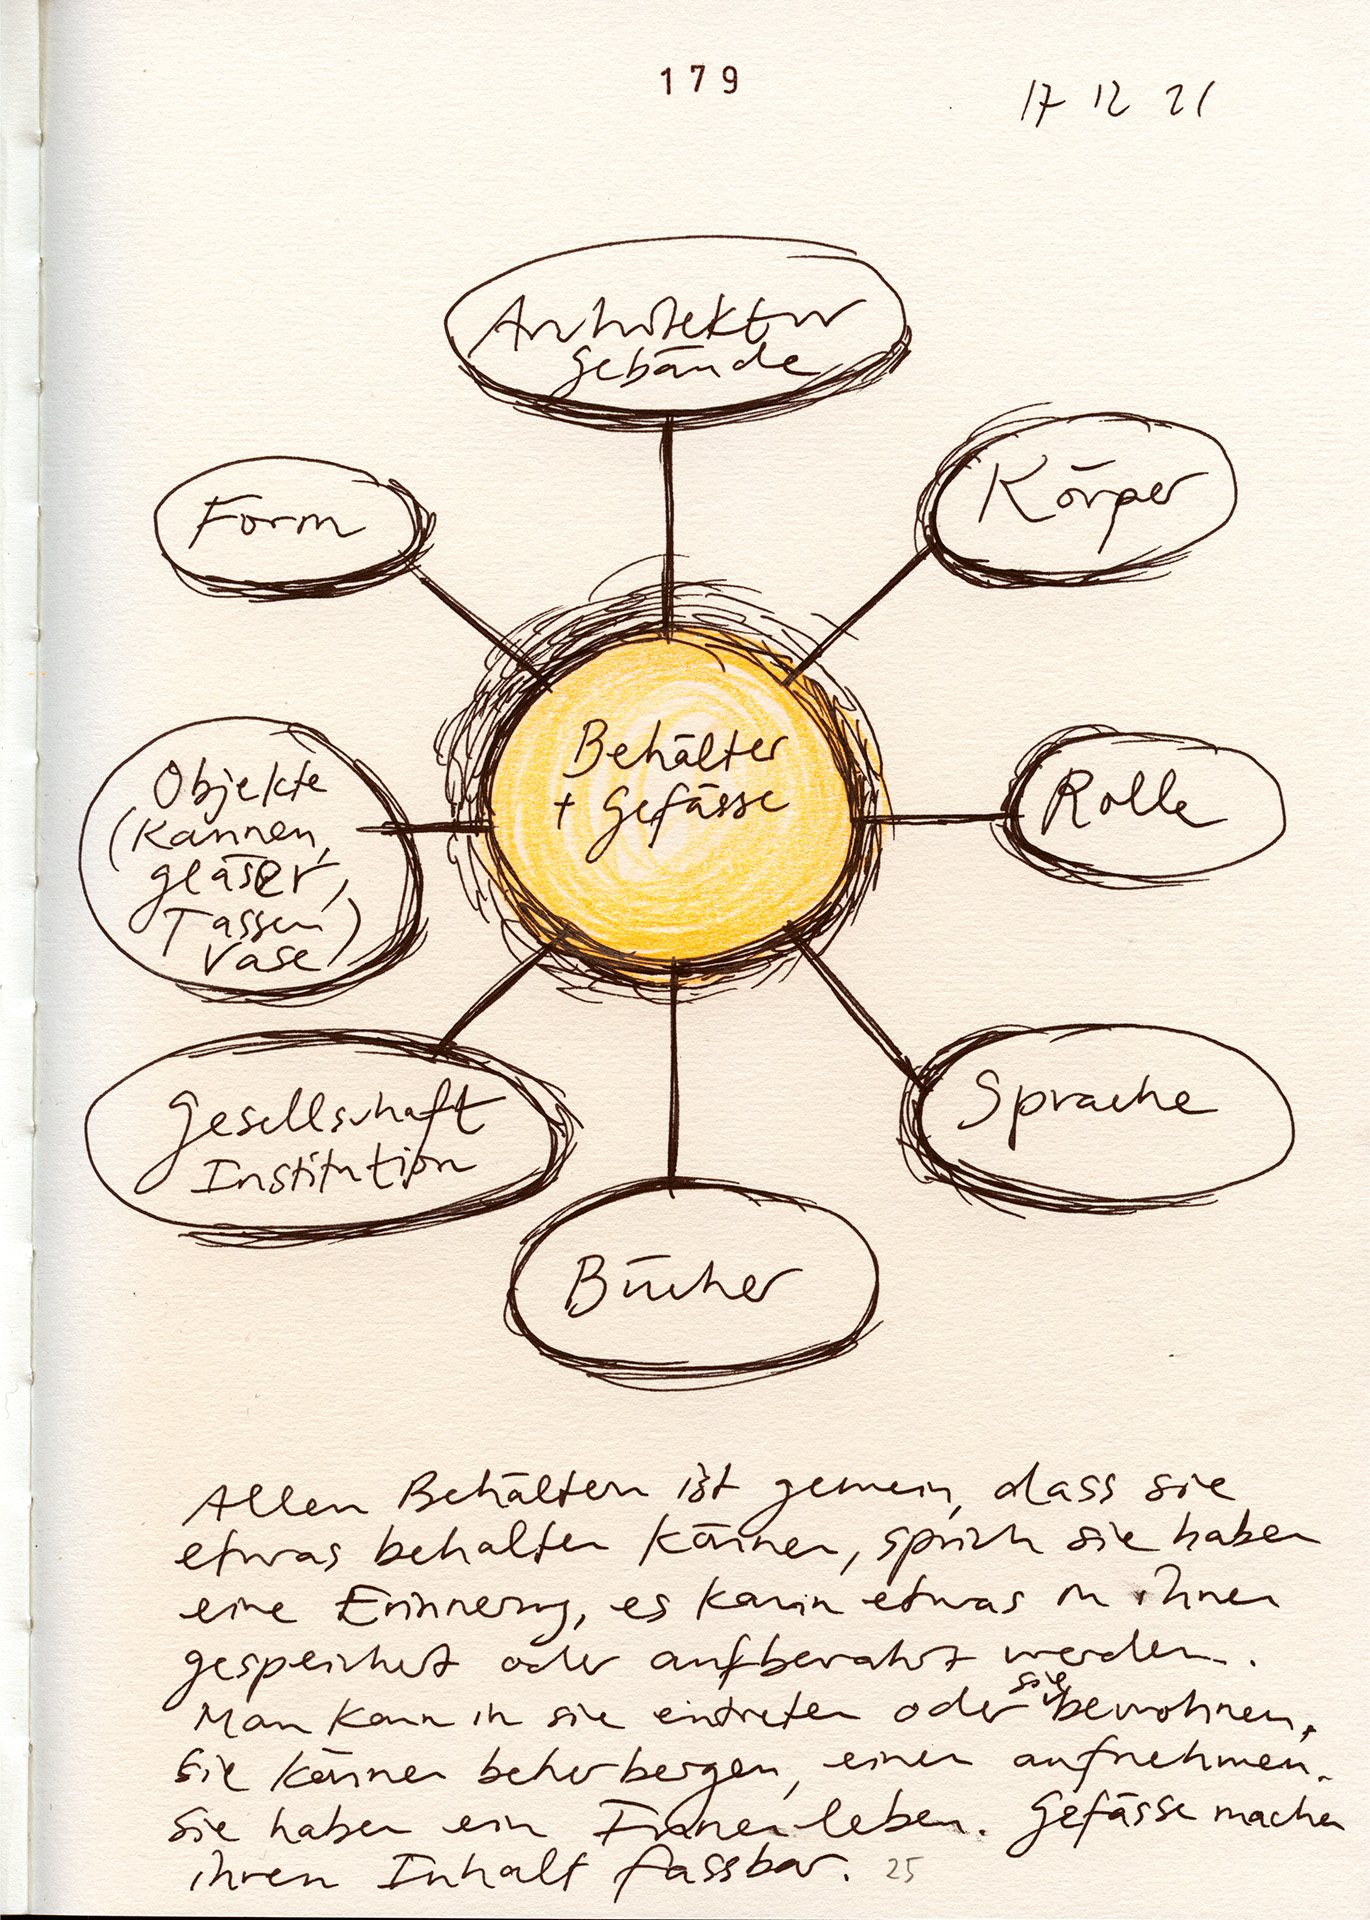 179
17 12 21
Architektur
Gebäude
Form
Körper
Behälter
+ Gefässe
Objekte
(Kannen,
Gläser,
Tassen,
Vase)
Rolle
Gesellschaft
Institution
Sprache
Bücher
Allen Behältern ist gemein, dass sie
etwas behalten können, sprich sie haben
eine Erinnerung, es kann etwas in ihnen
gespeichert oder aufbewahrt werden.
Man kann in sie eintreten oder sie bewohnen,
sie können beherbergen, einen aufnehmen.
Sie haben ein Innenleben. Gefässe machen
ihren Inhalt fassbar. 25